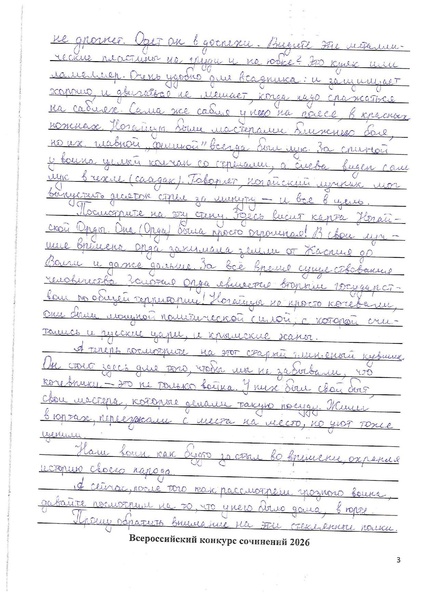 не дрогнет. Одет он в доспехи. Видите эти металли-
ческие пластины на груди и на юбке? Это куяк или
ламеллер. Очень удобно для всадника: и защищает
хорошо, и двигаться не мешает, когда надо сражаться
на саблях. Сама же сабля у него на поясе, в красных
ножнах. Ногайцы были мастерами ближнего боя,
но их главной "фишкой" всегда был лук. За спиной
у воина целый колчан со стрелами, а слева виден сам
лук в чехле (саадак). Говорят, ногайский лучник мог
выпустить десяток стрел за минуту — и все в цель.
Посмотрите на эту стену. Здесь висит карта Ногай-
ской Орды. Она (Орда) была просто огромная! В свои луч-
шие времена орда занимала земли от Каспия до
Волги и даже дальше. За всё время существования
человечества Золотая орда является вторым государст-
вом по общей территории! Ногайцы не просто кочевали,
они были мощной политической силой, с которой счи-
тались и русские цари, и крымские ханы.
А теперь посмотрите на этот старый глиняный кувшин.
Он стоит здесь для того, чтобы мы не забывали, что
кочевники — это не только война. У них был свой быт,
свои мастера, которые делали такую посуду. Жили
в юртах, переезжали с места на место, но уют тоже
ценили.
Наш воин как будто застыл во времени, охраняя
историю своего народа.
А сейчас, после того как рассмотрели грозного воина,
давайте посмотрим на то, что у него было дома, в юрте.
Прошу обратить внимание на эти стеклянные полки.
Всероссийский конкурс сочинений 2026
3